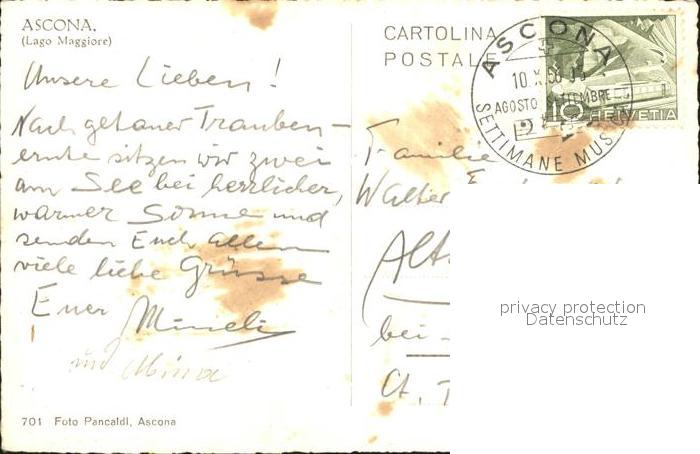 ASCONA.
(Lago Maggiore)
CARTOLINA
POSTALE
ASCONA
10.X.56
AGOSTO
SETTIMANE MUS
10 HELVETIA
Unsere Lieben!
Nach getaner Trauben-
ernte sitzen wir zwei
am See bei herrlicher,
warmer Sonne und
senden Euch allen
viele liebe Grüsse
Euer
und
Familie
Walter
Alt
bei
Ct. T
701 Foto Pancaldi, Ascona
privacy protection
Datenschutz